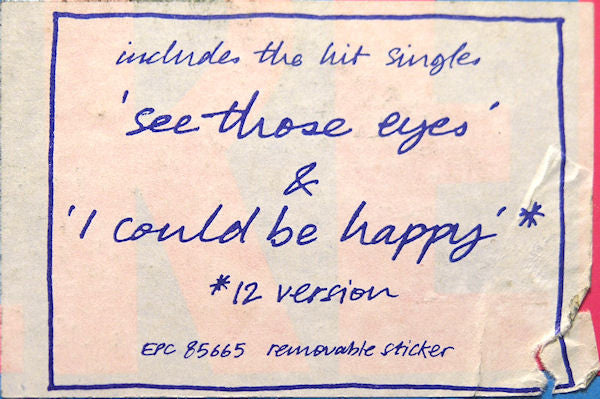 includes the hit singles
'see those eyes'
&
'I could be happy' *
*12 version
EPC 85665 removable sticker